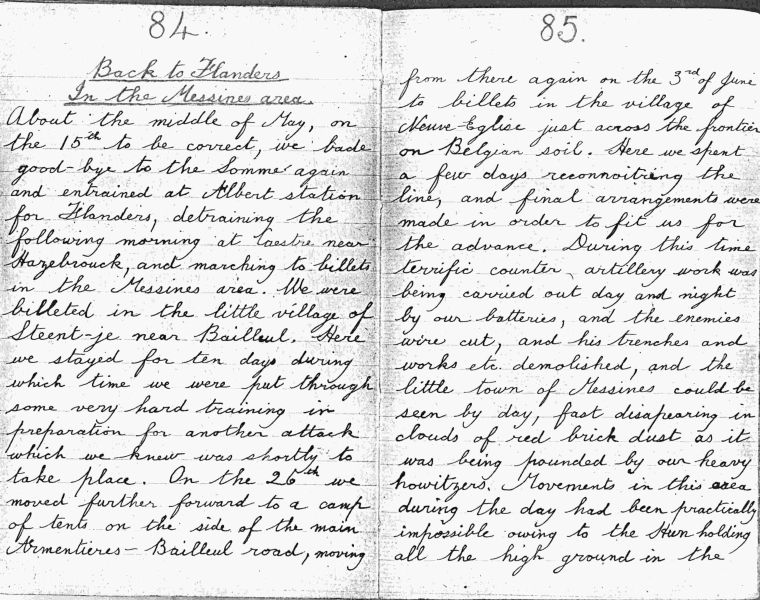 84.
Back to Flanders
In the Messines area.
About the middle of May, on
the 15th to be correct, we bade
good-bye to the Somme again
and entrained at Albert station
for Flanders, detraining the
following morning at Caestre near
Hazebrouck, and marching to billets
in the Messines area. We were
billeted in the little village of
Steent-je near Bailleul. Here
we stayed for ten days during
which time we were put through
some very hard training in
preparation for another attack
which we knew was shortly to
take place. On the 26th we
moved further forward to a camp
of tents on the side of the main
Armentieres - Bailleul road, moving
85.
from there again on the 3rd of June
to billets in the village of
Neuve-Eglise just across the frontier
on Belgian soil. Here we spent
a few days reconnoitring the
line, and final arrangements were
made in order to fit us for
the advance. During this time
terrific counter artillery work was
being carried out day and night
by our batteries, and the enemies
wire cut, and his trenches and
works etc. demolished, and the
little town of Messines could be
seen by day, fast disapearing in
clouds of red brick dust as it
was being pounded by our heavy
howitzers. Movements in this area
during the day had been practically
impossible owing to the Hun holding
all the high ground in the